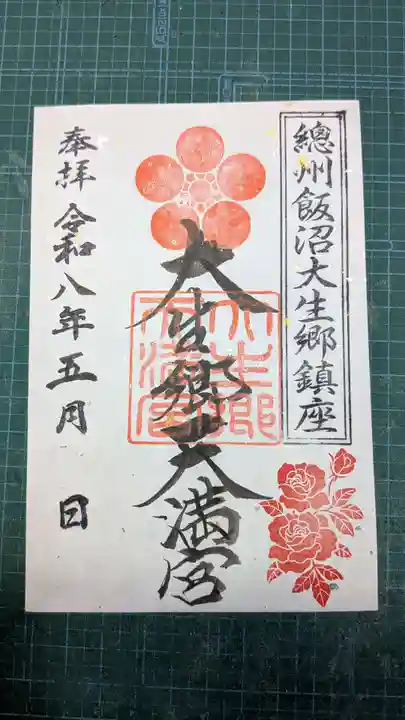 總州飯沼大生郷鎮座
大生郷天満宮
大生郷天満宮
奉拝 令和八年五月 日